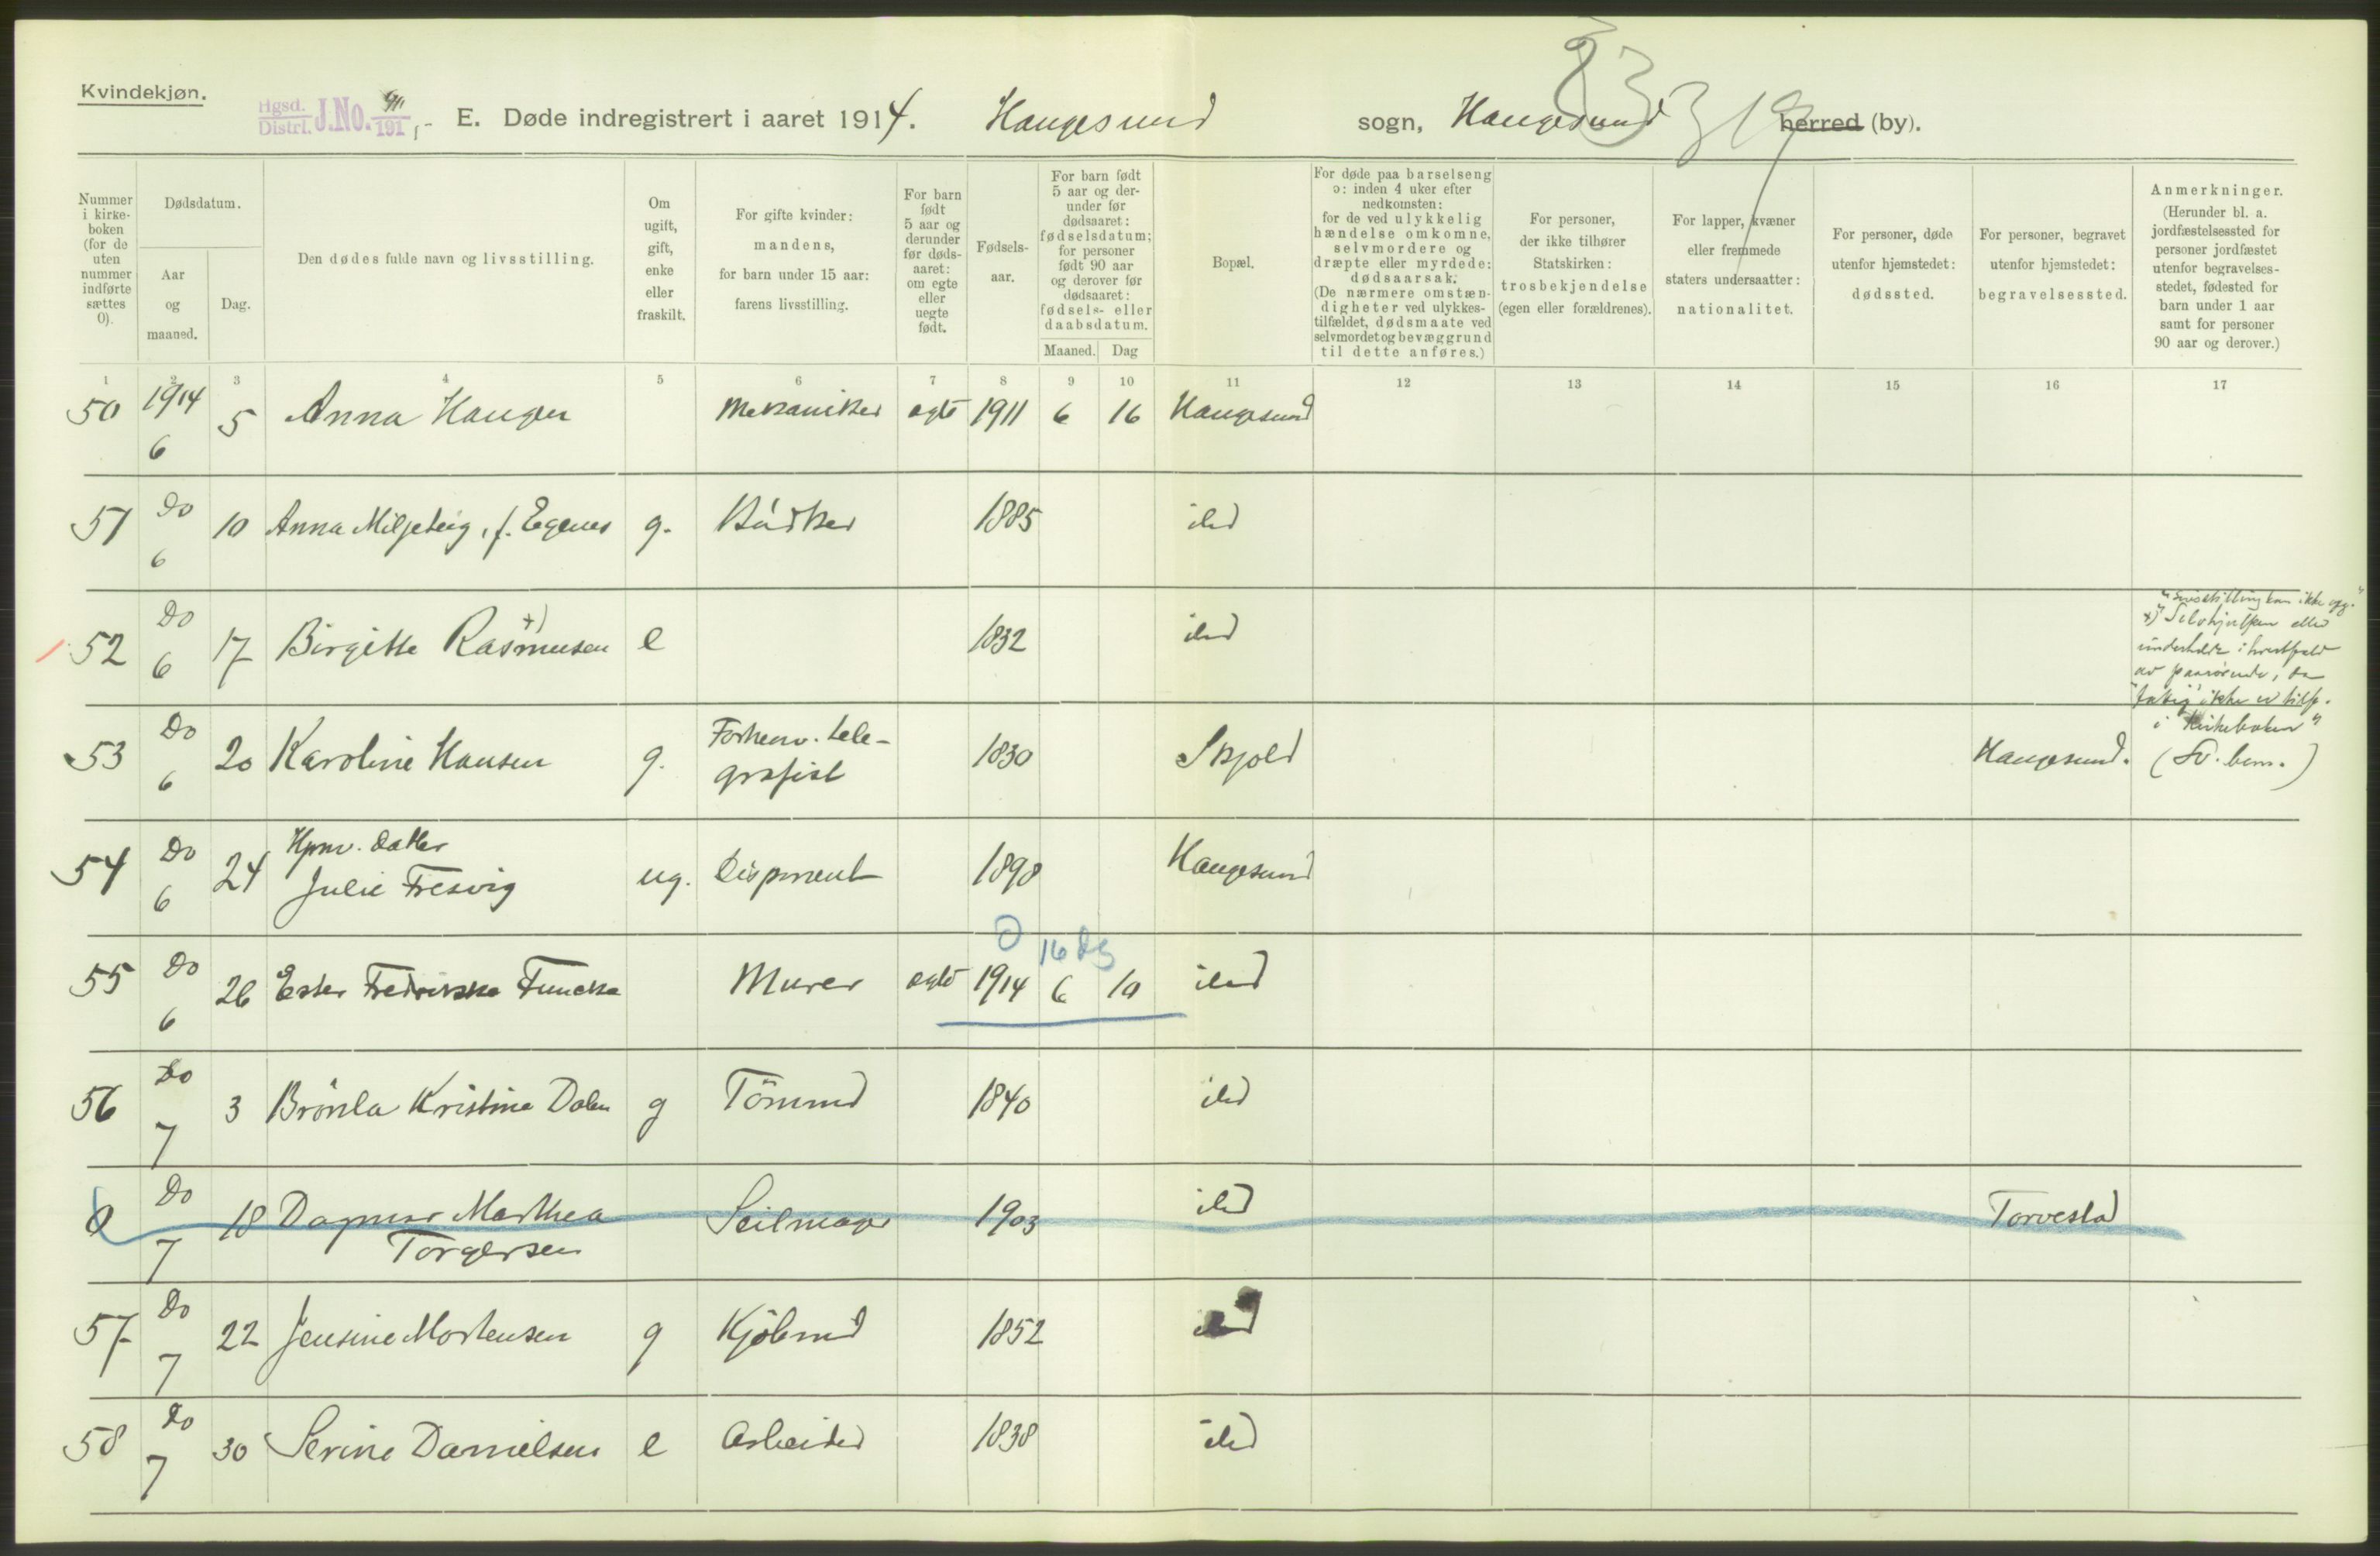 Kvindekjøn.
Hgsd. Distrl. J.No. 191
E. Døde indregistrert i aaret 1914. Haugesund sogn, Haugesund herred (by).
Nummer i kirke- boken (for de uten nummer indførte sættes 0).
Dødsdatum.
Aar og maaned.
Dag.
Den dødes fulde navn og livsstilling.
Om ugift, gift, enke eller fraskilt.
For gifte kvinder: mandens, for barn under 15 aar: farens livsstilling.
For barn født 5 aar og derunder før døds- aaret: om egte eller uegte født.
Fødsels- aar.
For barn født 5 aar og der- under før dødsaaret: fødselsdatum; for personer født 90 aar og derover før dødsaaret: fødsels- eller daabsdatum.
Maaned. Dag
Bopæl.
For døde paa barselseng ɔ: inden 4 uker efter nedkomsten: for de ved ulykkelig hændelse omkomne, selvmordere og dræpte eller myrdede: dødsaarsak. (De nærmere omstæn- digheter ved ulykkes- tilfældet, dødsmaate ved selvmordet og bevæggrund til dette anføres.)
For personer, der ikke tilhører Statskirken: trosbekjendelse (egen eller forældrenes).
For lapper, kvæner eller fremmede staters undersaatter: nationalitet.
For personer, døde utenfor hjemstedet: dødssted.
For personer, begravet utenfor hjemstedet: begravelsessted.
Anmerkninger. (Herunder bl. a. jordfæstelsessted for personer jordfæstet utenfor begravelses- stedet, fødested for barn under 1 aar samt for personer 90 aar og derover.)
1 2 3 4 5 6 7 8 9 10 11 12 13 14 15 16 17
50 1914 6 5 Anna Haugen Mekaniker egte 1911 6 16 Haugesund
51 Do 6 10 Anna Miljeteig, f. Egenes g. 1885 ibd
52 Do 6 17 Birgitte Rasmusen x) e 1832 ibd
x) Selvhjulpen eller
av paarørende, da
"fattig" ikke er tilf.
i kirkeboken"
53 Do 6 20 Karoline Hansen g. Forhenv. tele- 1830 Skjold Haugesund. (Sv. bem.)
grafist
54 Do 6 24 Hjemv. datter
Julie Fresvig ug. Disponent 1898 Haugesund
0 16 dg
55 Do 6 26 Ester Fredrikke Funcke Murer egte 1914 6 10 ibd
56 Do 7 3 Brönla Kristine Dalen g Tömmd 1840 ibd
0 Do 7 18 Dagmar Marthea Seilmager 1903 ibd Torvestad
Torgersen
57 Do 7 22 Jensine Mortensen g Kjöbmd 1852 ibd
58 Do 7 30 Serine Danielsen e Arbeider 1838 ibd